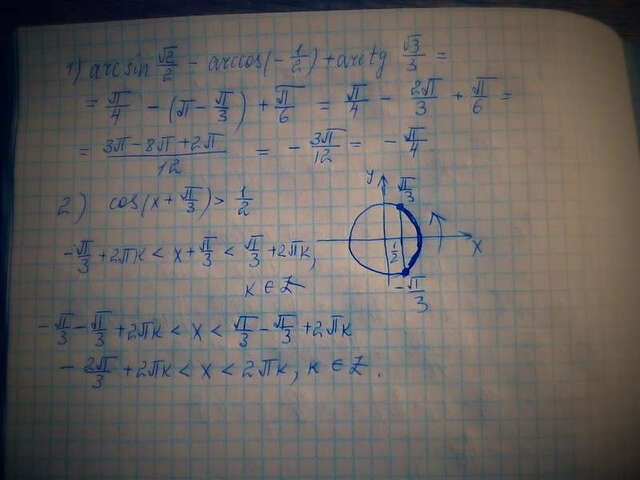 1) arcsin √2/2 - arccos(-1/2) + arctg √3/3 =
= π/4 - (π - π/3) + π/6 = π/4 - 2π/3 + π/6 =
= (3π - 8π + 2π)/12 = - 3π/12 = - π/4
2) cos(x + π/3) > 1/2
- π/3 + 2πk < x + π/3 < π/3 + 2πk,
k ∈ Z
- π/3 - π/3 + 2πk < x < π/3 - π/3 + 2πk
- 2π/3 + 2πk < x < 2πk, k ∈ Z.
y
π/3
1/2
x
- π/3